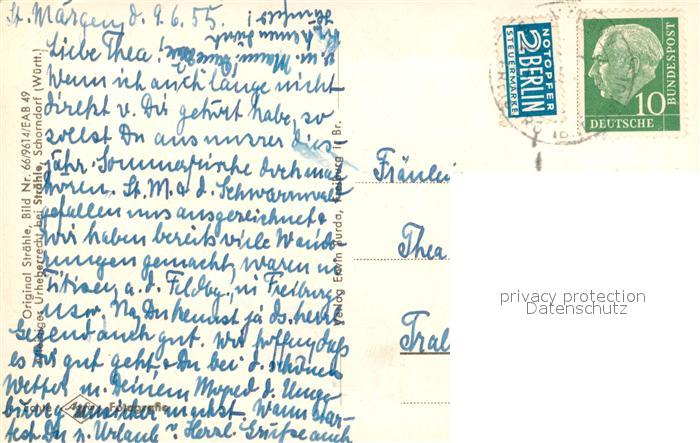 St. Märgen, d. 9.6.55.
Liebe Thea!
Wenn ich auch lange nicht
direkt v. Dir gehört habe, so
sollst Du aus unsrer dies-
jähr. Sommerfrische doch mal
hören. St. M. & d. Schwarzwald
gefallen uns ausgezeichnet &
wir haben bereits viele Wande-
rungen gemacht, waren in
Titisee, a. d. Feldbg., in Freiburg
usw. Na, Du kennst ja ds. herrl.
Gegend auch gut. Wir hoffen, daß
es Dir gut geht & Du bei d. schönen
Wetter m. Deinem Moped d. Umge-
bung machst. Wann
Du n. Urlaub? Herzl. Grüße auch
Original Strähle, Bild Nr. 66/9614/EAB 49
Urheberrecht bei Strähle, Schorndorf (Württ.)
Agfa Fotografie
Verlag Erwin Burda, Freiburg i. Br.
NOTOPFER
2 BERLIN
STEUERMARKE
10
DEUTSCHE
BUNDESPOST
Fräulein
Thea
Tra
privacy protection
Datenschutz